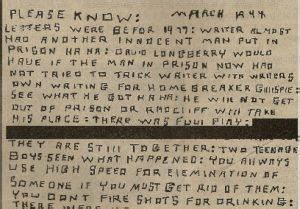 PLEASE KNOW: MARCH 1ST
LETTERS WERE BEFOR 1977: WRITER ALMOST
HAD ANOTHER INNOCENT MAN PUT IN
PRISON HA HA: DAVID LONGBERRY WOULD
HAVE IF THE MAN IN PRISON NOW HAD
NOT TRIED TO TRICK WRITER WITH WRITERS
OWN WRITING FOR HOMEBREAKER GILLISPIE:
SEE WHAT HE GOT HA HA: HE WILL NOT GET
OUT OF PRISON OR RADCLIFF WILL TAKE
HIS PLACE: THERE WAS FOUL PLAY:
THEY ARE STILL TOGETHER: TWO TEENAGE
BOYS SEEN WHAT HAPPENED: YOU ALWAYS
USE HIGH SPEED FOR ELEMINATION OF
SOMEONE IF YOU MUST GET RID OF THEM:
YOU DONT FIRE SHOTS FOR DRINKING:
THERE WERE